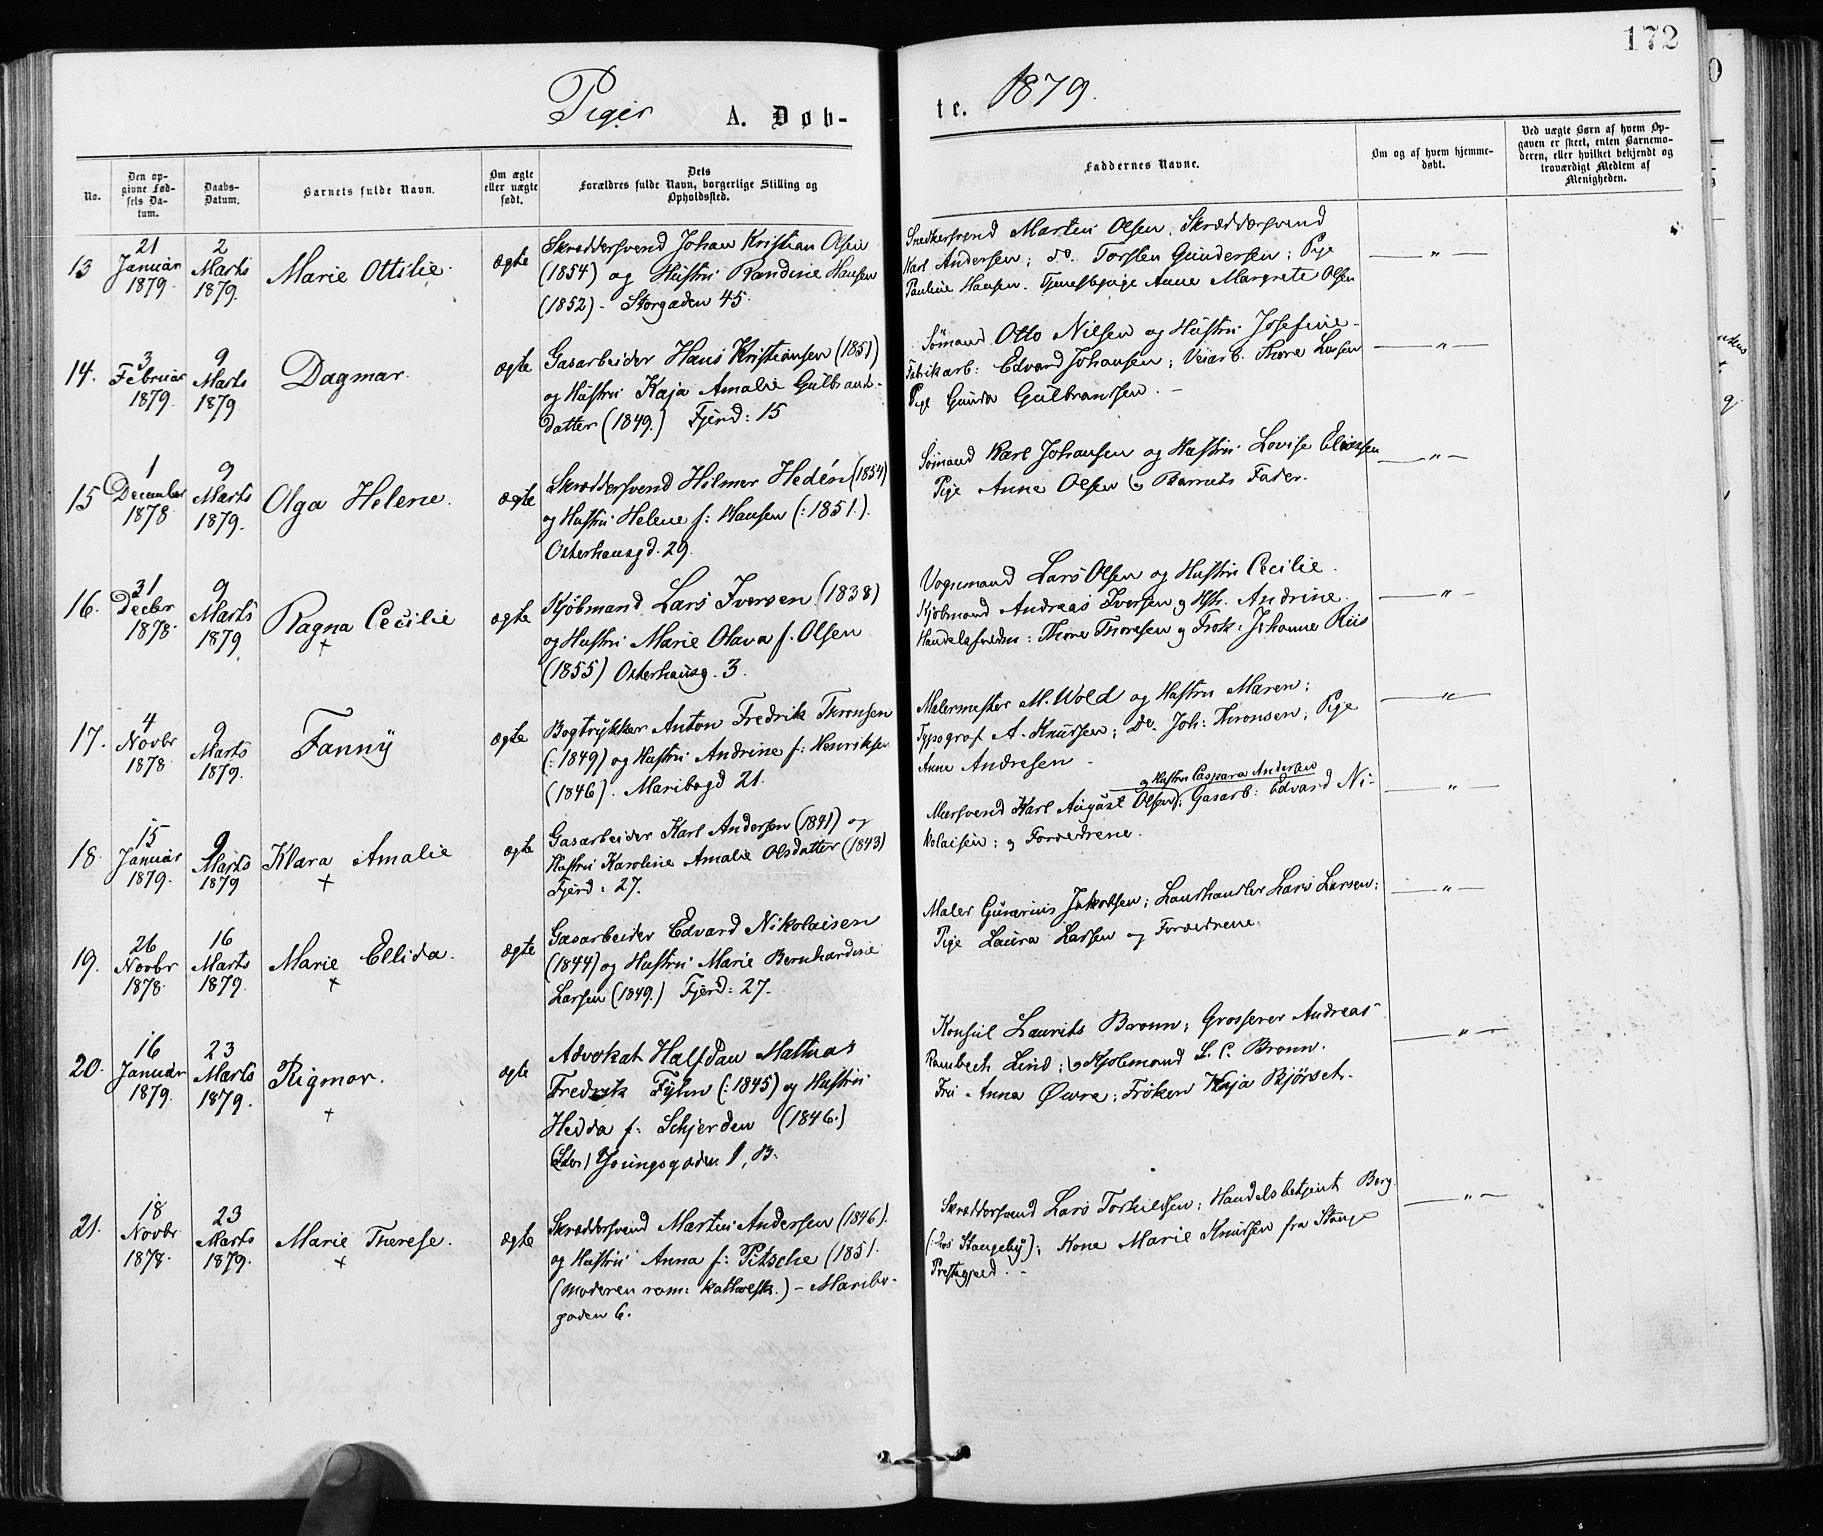 172
Piger A. Døb-
te. 1879.
No.
Den op-
givne Fød-
sels Da-
tum.
Daabs-
Datum.
Barnets fulde Navn.
Om ægte
eller uægte
født.
Dets
Forældres fulde Navn, borgerlige Stilling og
Opholdssted.
Faddernes Navne.
Om og af hvem hjemme-
døbt.
Ved uægte Børn af hvem Op-
gaven er skeet, enten Barnemo-
deren, eller hvilket bekjendt og
troværdigt Medlem af
Menigheden.
13
21
Januar
1879.
2
Marts
1879.
Marie Ottilie.
ægte
Skræddersvend Johan Kristian Olsen
(1854) og Hustru Randine Hansen
(1852) - Storgaden 45.
Snedkersvend Martin Olsen; Skræddersvend
Karl Andersen; do. Torsten Gundersen; Pige
Pauline Hansen. Tjenestepige Anne Margrete Olsen
— „ —
14.
3
Februar
1879.
9
Marts
1879
Dagmar.
ægte
Gasarbeider Hans Kristiansen (1851)
og Hustru Kaja Amalie Gulbrands-
datter (1849.) Fjerd: 15
Sømand Otto Nilsen og Hustru Josefine -
Fabrikarb: Edvard Johansen; Veiarb. Thore Larsen
Pige Gunda Gulbransen. -
— „ —
15
1
December
1878
9
Marts
1879.
Olga Helene.
ægte
Skræddersvend Hilmer Hedén (1854)
og Hustru Helene f: Hansen (: 1851.).
Osterhausgd. 29.
Sømand Karl Johansen og Hustru Lovise Eliassen
Pige Anne Olsen og Barnets Fader.
— „ —
16.
31
Decbr
1878.
9
Marts
1879
Ragna Cecilie
+
ægte
Kjøbmand Lars Iversen (1838)
og Hustru Marie Olava f. Olsen
(1855) Osterhausg. 3.
Vognmand Lars Olsen og Hustru Cecilie.
Kjøbmand Andreas Iversen og Hst. Andrine.
Thore Thoresen og Frøk: Johanne Riis
— „ —
17.
4
Novbr
1878
9
Marts
1879.
Fanny
ægte
Bogtrykker Anton Fredrik Thronsen
(: 1849) og Hustru Andrine f: Henriksen
(1846). Maribogd 21.
Malermester M. Wold og Hustru Maren;
Typograf A. Knudsen; Do. Joh: Thronsen; Pige
Anne Andresen -
— „ —
18.
15
Januar
1879.
9
Marts
1879
Klara Amalie
+
ægte
Gasarbeider Karl Andersen (1841) og
Hustru Karoline Amalie Olsdatter (1843)
Fjerd: 27.
og Hustru Caspara Andersen
Mursvend Karl August Olsen; Gasarb: Edvard Ni-
kolaisen; og Forældrene.
— „ —
19.
26
Novbr
1878.
16
Marts
1879.
Marie Ellida.
+
ægte
Gasarbeider Edvard Nikolaisen
(1844) og Hustru Marie Bernhardine
Larsen (1849.) Fjerd: 27.
Maler Gunerius Jakobsen; Landhandler Lars Larsen;
Pige Laura Larsen og Forældrene.
— „ —
20.
16
Januar
1879.
23
Marts
1879.
Rigmor.
+
ægte
Advokat Halfdan Mathias
Fredrik Fylin (: 1845) og Hustru
Hedda f. Schjerden (1846.)
Youngsgaden 1, B.
Konsul Laurits Bronn; Grosserer Andreas
Rambech Lind; og Kjøbmand L. C. Bronn.
Fru - Anna Øvre; Frøken Kaja Bjørset.
— „ —
21.
18
Novbr
1878.
23
Marts
1879.
Marie Therese.
+
ægte
Skræddersvend Martin Andersen (1846).
og Hustru Anna f: Pitsche (1851.
(Moderen rom: katholsk.) - Maribo-
gaden 6.
Skræddersvend Lars Torkildsen; Handelsbetjent Berg
(: Stangeby); Kone Marie Knudsen fra Stange
Prestegjeld. -
— „ —